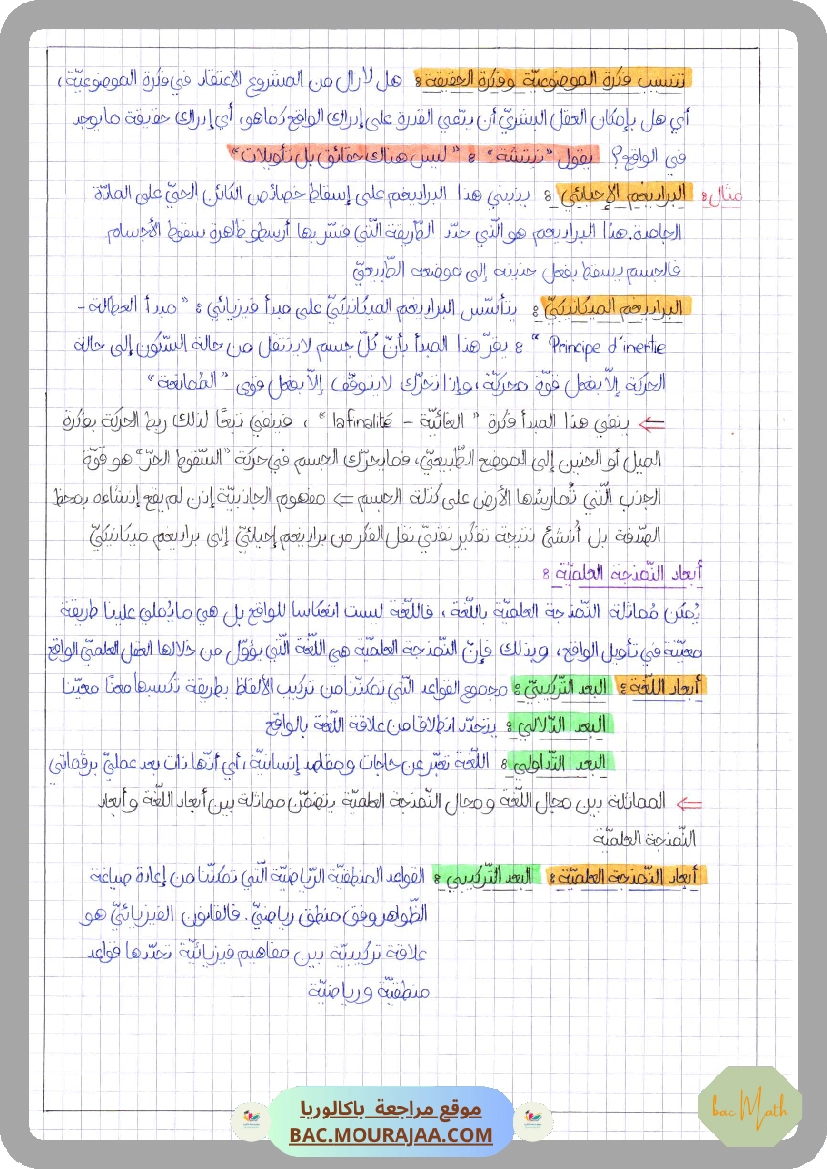 تنسيب فكرة الموضوعيّة وفكرة الحقيقة : هل لازال من المشروع الاعتقاد في فكرة الموضوعيّة،
أي هل بإمكان العقل البشريّ أن يدّعي القدرة على إدراك الواقع كما هو، أي إدراك حقيقة ما يوجد
في الواقع؟ يقول "نيتشة" : "ليس هناك حقائق بل تأويلات"
مثال: البراديغم الإحيائي : ينبني هذا البراديغم على إسقاط خصائص الكائن الحيّ على المادّة
الجامدة. هذا البراديغم هو الّذي حدّد الطّريقة الّتي فسّر بها أرسطو ظاهرة سقوط الأجسام
فالجسم يسقط بفعل حنينه إلى موضعه الطّبيعيّ
البراديغم الميكانيكيّ : يتأسّس البراديغم الميكانيكيّ على مبدأ فيزيائي : "مبدأ العطالة -
Principe d'inertie" : يقرّ هذا المبدأ بأنّ كلّ جسم لا ينتقل من حالة السّكون إلى حالة
الحركة إلاّ بفعل قوّة محركّة، وإذا تحرّك لا يتوقّف إلاّ بفعل قوى "الممانعة"
⇐ ينفي هذا المبدأ فكرة "الغائيّة - la finalité" ، فينفي تبعًا لذلك ربط الحركة بفكرة
الميل أو الحنين إلى الموضع الطّبيعيّ، فما يحرّك الجسم في حركة "السّقوط الحرّ" هو قوّة
الجذب الّتي تُمارسُها الأرض على كتلة الجسم ⇐ مفهوم الجاذبيّة إذن لم يقع إنشاءه بمحظ
الصّدفة بل أُنشئ نتيجة تفكير نقديّ نقل الفكر من براديغم إحيائيّ إلى براديغم ميكانيكيّ
أبعاد النّمذجة العلميّة :
يُمكن مُماثلة النّمذجة العلميّة باللّغة ، فاللّغة ليست انعكاسا للواقع بل هي ما يُملي علينا طريقة
معيّنة في تأويل الواقع، وبذلك فإنّ النّمذجة العلميّة هي اللّغة الّتي يؤوّل من خلالها العقل العلميّ الواقع
أبعاد اللّغة : البعد التّركيبيّ : مجموع القواعد الّتي تمكنّنا من تركيب الألفاظ بطريقة تُكسبها معنًا معيّنا
البعد الدّلالي : يتحدّد انطلاقا من علاقة اللّغة بالواقع
البعد التّداولي : اللّغة تعبّر عن حاجات ومقاصد إنسانيّة، أي أنّها ذات بعد عمليّ برقماتي
⇐ المماثلة بين مجال اللّغة ومجال النّمذجة العلميّة يتضمّن مماثلة بين أبعاد اللّغة وأبعاد
النّمذجة العلميّة
أبعاد النّمذجة العلميّة : البعد التّركيبي : القواعد المنطقيّة الرّياضيّة الّتي تمكنّنا من إعادة صياغة
الظّواهر وفق منطق رياضيّ. فالقانون الفيزيائيّ هو
علاقة تركيبيّة بين مفاهيم فيزيائيّة تحدّدها قواعد
منطقيّة ورياضيّة
موقع مراجعة باكالوريا
BAC.MOURAJAA.COM
bac Math